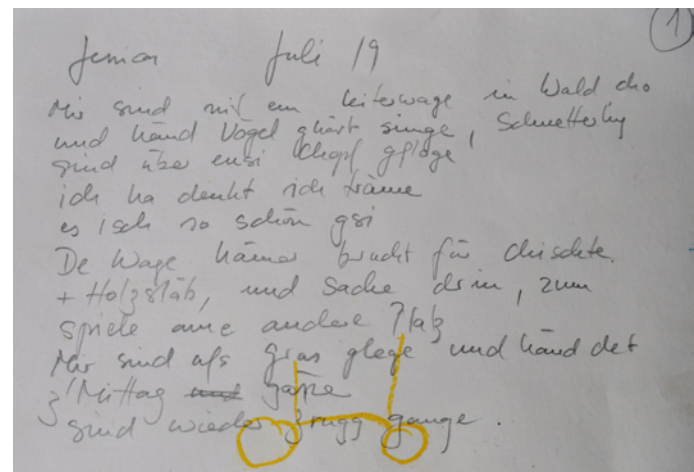 1
Jenior Juli 19
Mir sind mit em Leiterwage in Wald cho
und händ Vögel ghört singe, Schmetterling
sind über eusi Chöpf gfloge
ich ha denkt ich träume
es isch so schön gsi
De Wage hämer brucht für Chischte
+ Holzstäb, und Sache drin, zum
spiele ame andere Platz
Mir sind ufs gras glege und händ det
z'Mittag gässe
sind wieder zrugg gange.